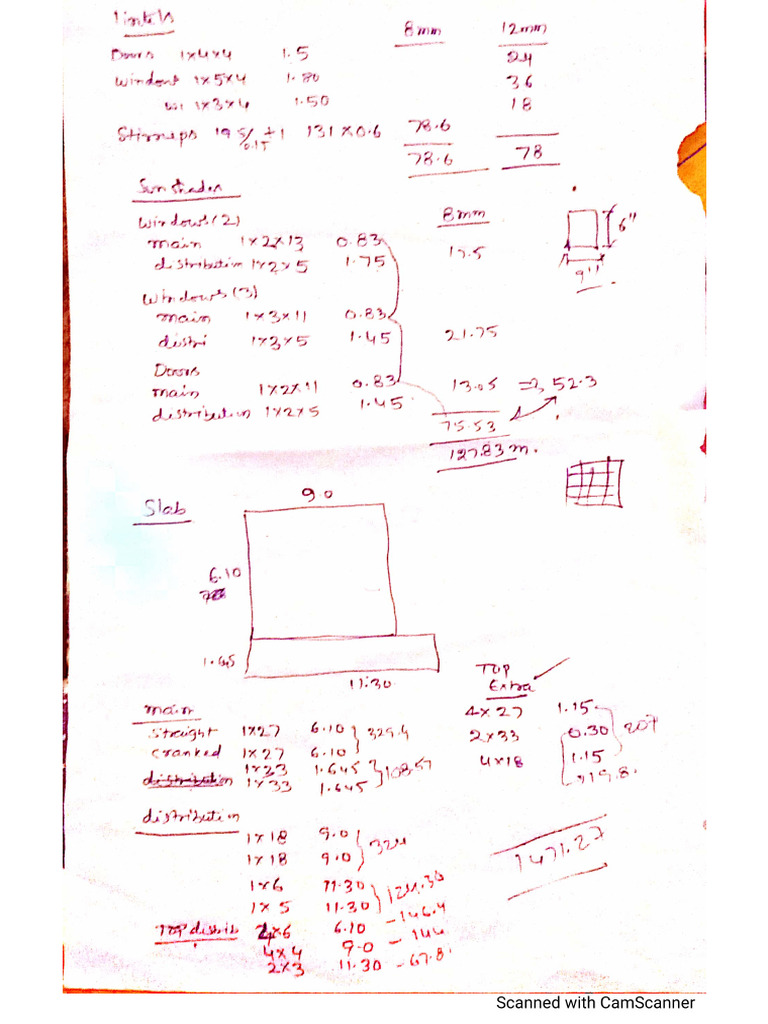 Lintels
8mm 12mm
Doors 1x4x4 1.5 24
Windows 1x5x4 1.80 36
1x3x4 1.50 18
Stirrups 19.5/0.15 +1 131 x 0.6 78.6
78.6 78
Sunshades
8mm
6"
9"
Windows (2)
main 1x2x13 0.83
distribution 1x2x5 1.75
Windows (3)
main 1x3x11 0.83
distri 1x3x5 1.45 21.75
Doors
main 1x2x11 0.83 13.05 => 52.3
distribution 1x2x5 1.45
75.53
127.83 m.
Slab
9.0
6.10
1.645
11.30
Top Extra
main
4x27 1.15
straight 1x27 6.10 329.4
2x33 0.30 207
cranked 1x27 6.10
4x18 1.15
1x33 1.645 108.57
1x33 1.645
19.8
distribution
1x18 9.0 324
1x18 9.0
1471.27
1x6 11.30 124.30
1x5 11.30
Top distrib 4x6 6.10 - 146.4
4x4 9.0 - 144
2x3 11.30 - 67.8
Scanned with CamScanner